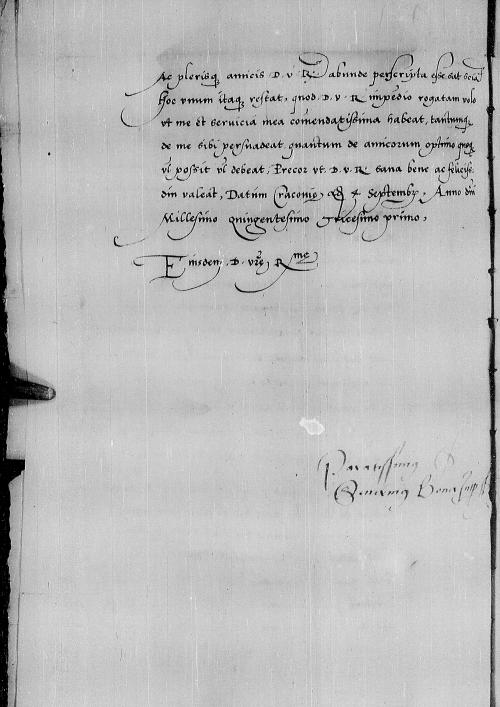 Ac plerisq amicis D. v. R. abunde perscripta esse sat scia
hoc vnum itaq restat, quod D. v. R. impendio rogatam volo
vt me et seruicia mea comendatissima habeat, tantumq
de me sibi persuadeat quantum de amicorum optimo quoq
vl possit vl debeat. Precor vt D. v. R. sana bene ac felicis
diu valeat, Datum Cracouie, 4 Septemb, Anno dni
Millesimo quingentesimo Tricesimo primo,
Eiusdem D. vre R me
Paratissimus
Seuerinus Boner